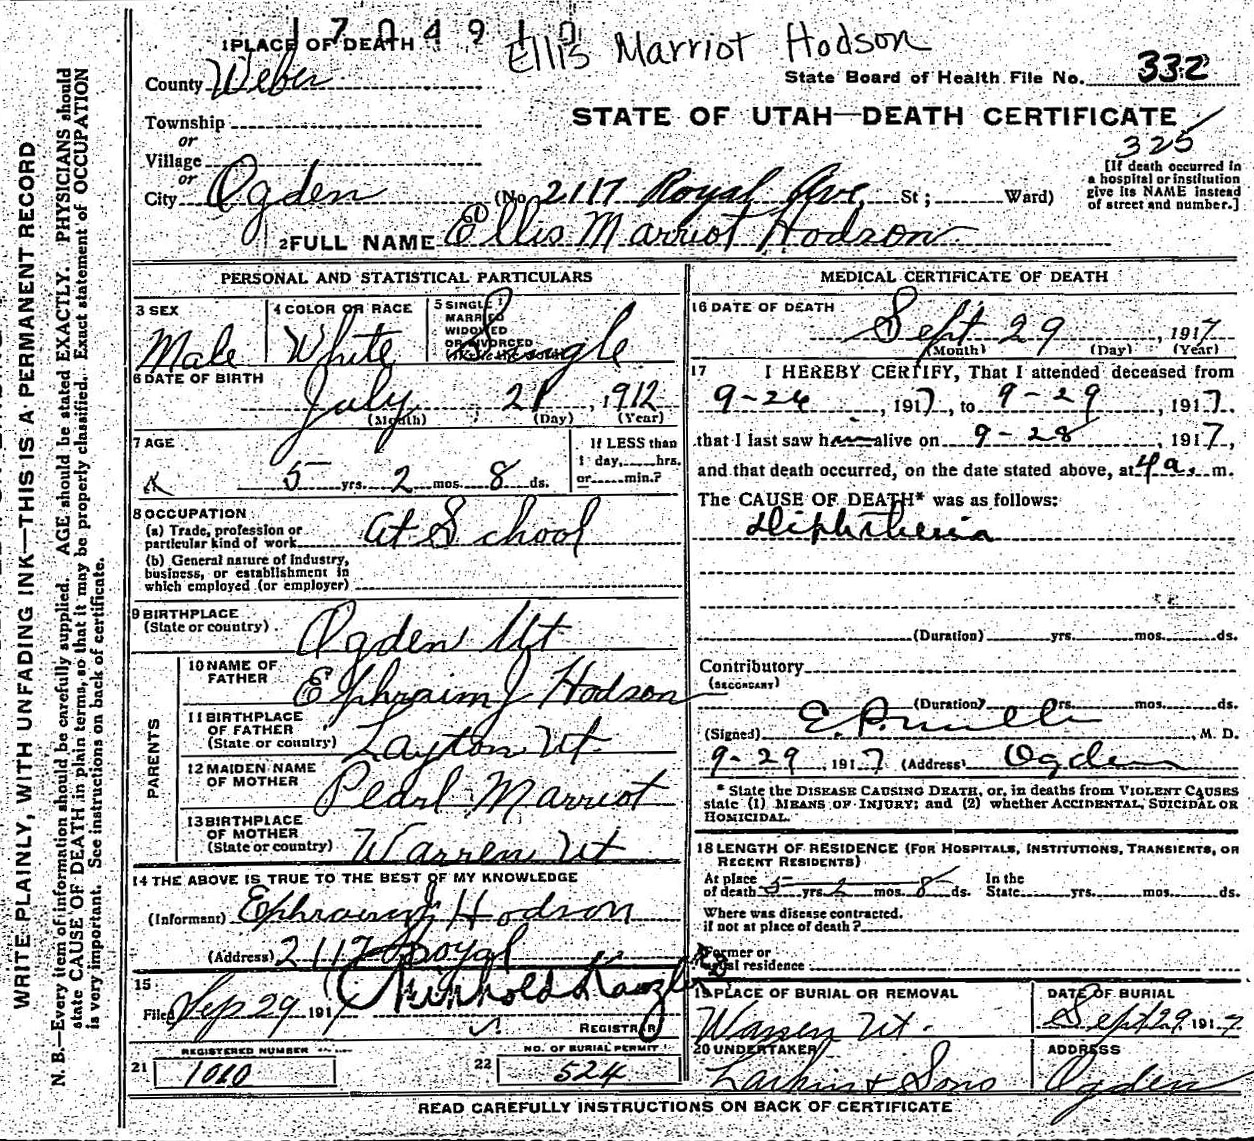 1704910
Ellis Marriot Hodson
1 PLACE OF DEATH
County Weber
State Board of Health File No. 332
STATE OF UTAH—DEATH CERTIFICATE
325
Township
or
Village
or
City Ogden (No 2117 Royal Ave. St; Ward)
[If death occurred in
a hospital or institution
give its NAME instead
of street and number.]
2 FULL NAME Ellis Marriot Hodson
PERSONAL AND STATISTICAL PARTICULARS
3 SEX
Male
4 COLOR OR RACE
White
5 SINGLE
MARRIED
WIDOWED
OR DIVORCED
Single
6 DATE OF BIRTH
July 21, 1912
(Month) (Day) (Year)
7 AGE
5 yrs. 2 mos. 8 ds.
If LESS than
1 day, hrs.
or min.?
8 OCCUPATION
(a) Trade, profession or
particular kind of work At School
(b) General nature of industry,
business, or establishment in
which employed (or employer)
9 BIRTHPLACE
(State or country) Ogden Ut
PARENTS
10 NAME OF
FATHER Ephraim J Hodson
11 BIRTHPLACE
OF FATHER
(State or country) Layton Ut.
12 MAIDEN NAME
OF MOTHER Pearl Marriot
13 BIRTHPLACE
OF MOTHER
(State or country) Warren Ut
14 THE ABOVE IS TRUE TO THE BEST OF MY KNOWLEDGE
(Informant) Ephraim J Hodson
(Address) 2117 Royal
15
Filed Sep 29 1917 Reinhold Kanzler
REGISTRAR
21 REGISTERED NUMBER
1010
22 NO. OF BURIAL PERMIT
524
MEDICAL CERTIFICATE OF DEATH
16 DATE OF DEATH
Sept 29, 1917
(Month) (Day) (Year)
17 I HEREBY CERTIFY, That I attended deceased from
9-26, 1917, to 9-29, 1917.
that I last saw him alive on 9-28, 1917,
and that death occurred, on the date stated above, at 4 a. m.
The CAUSE OF DEATH* was as follows:
Diphtheria
(Duration) yrs. mos. ds.
Contributory
(SECONDARY)
(Duration) yrs. mos. ds.
(Signed) M. D.
9-29, 1917 (Address) Ogden
* State the DISEASE CAUSING DEATH, or, in deaths from VIOLENT CAUSES
state (1) MEANS OF INJURY; and (2) whether ACCIDENTAL, SUICIDAL OR
HOMICIDAL.
18 LENGTH OF RESIDENCE (FOR HOSPITALS, INSTITUTIONS, TRANSIENTS, OR
RECENT RESIDENTS)
At place
of death 5 yrs. 2 mos. 8 ds. In the
State yrs. mos. ds.
Where was disease contracted.
if not at place of death?
Former or
usual residence
19 PLACE OF BURIAL OR REMOVAL
Warren Ut.
DATE OF BURIAL
Sept 29 1917
20 UNDERTAKER
Larkin & Sons
ADDRESS
Ogden
READ CAREFULLY INSTRUCTIONS ON BACK OF CERTIFICATE
WRITE PLAINLY, WITH UNFADING INK—THIS IS A PERMANENT RECORD
N. B.—Every item of information should be carefully supplied. AGE should be stated EXACTLY. PHYSICIANS should
state CAUSE OF DEATH in plain terms, so that it may be properly classified. Exact statement of OCCUPATION
is very important. See instructions on back of certificate.